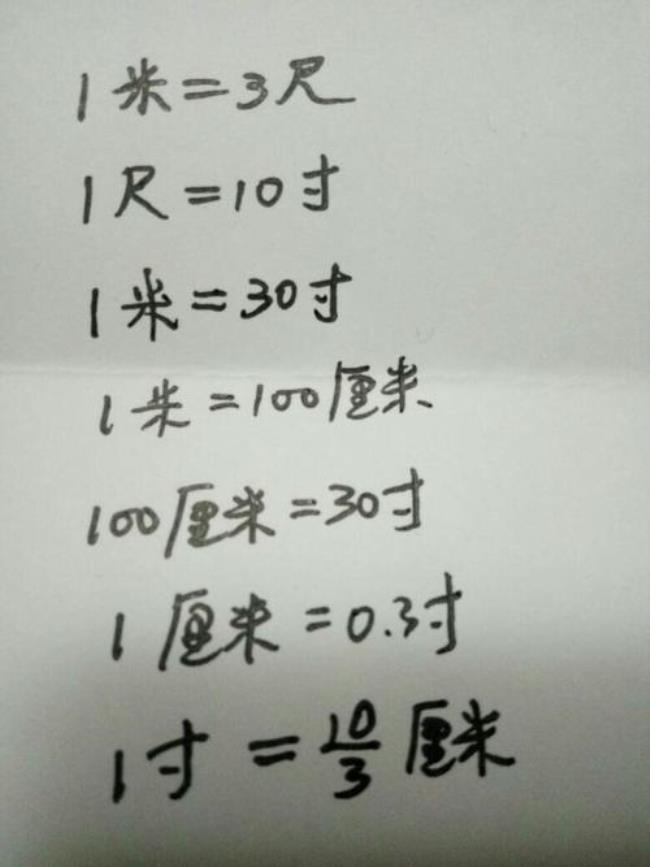 1米=3尺
1尺=10寸
1米=30寸
1米=100厘米
100厘米=30寸
1厘米=0.3寸
1寸=10/3厘米